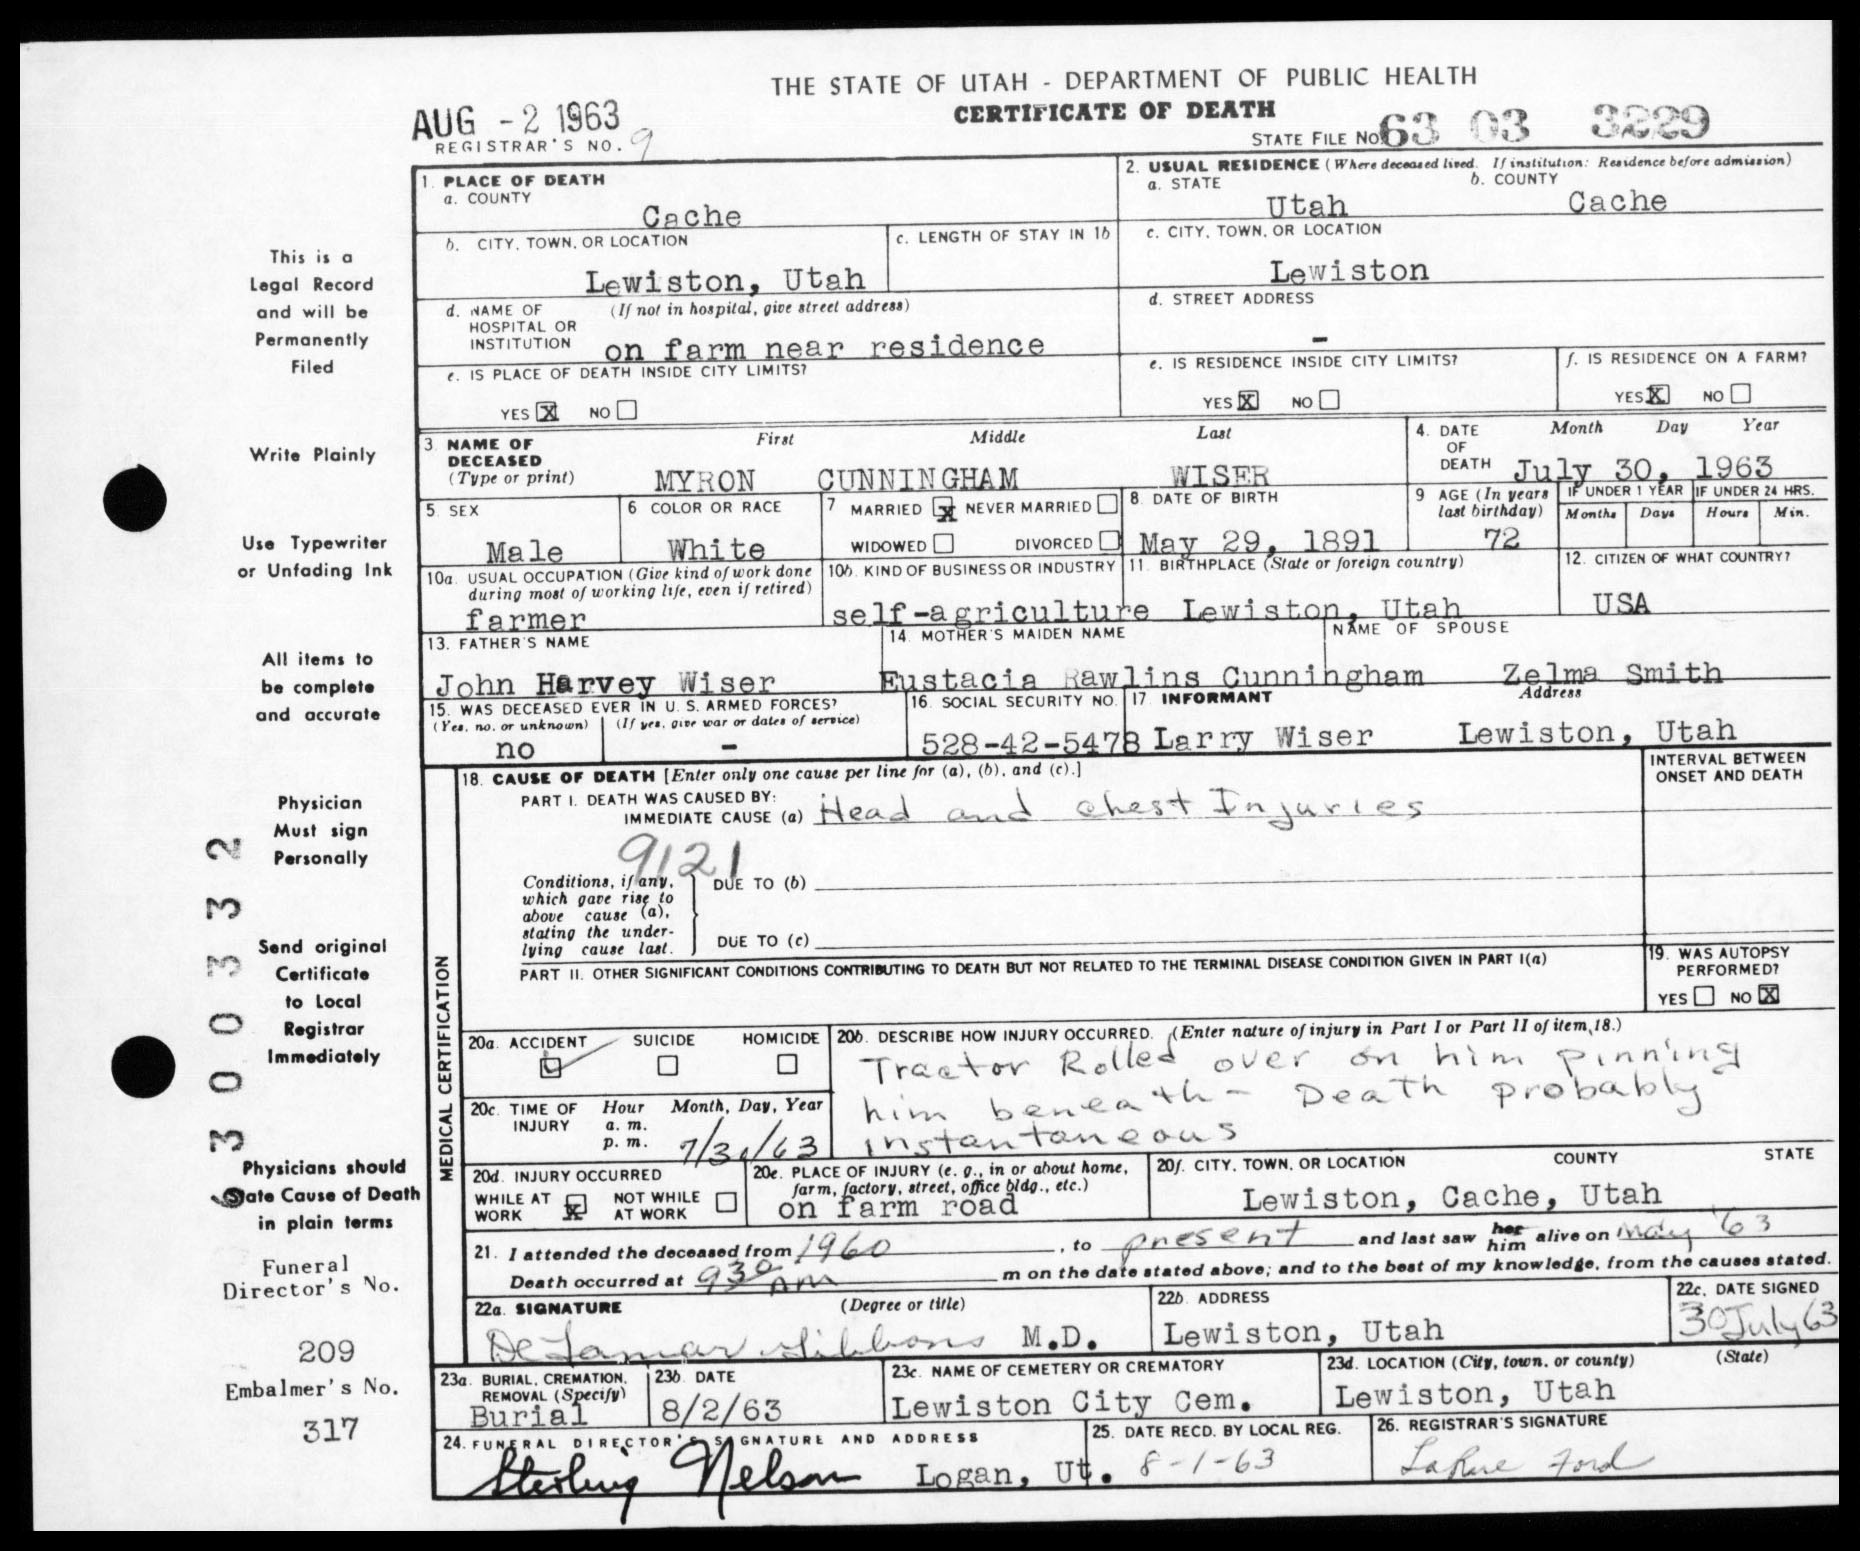 THE STATE OF UTAH - DEPARTMENT OF PUBLIC HEALTH
CERTIFICATE OF DEATH
AUG - 2 1963
REGISTRAR'S NO. 9
STATE FILE NO. 63 03 3229
This is a
Legal Record
and will be
Permanently
Filed
Write Plainly
Use Typewriter
or Unfading Ink
All items to
be complete
and accurate
Physician
Must sign
Personally
Send original
Certificate
to Local
Registrar
Immediately
Physicians should
State Cause of Death
in plain terms
Funeral
Director's No.
209
Embalmer's No.
317
1. PLACE OF DEATH
a. COUNTY
Cache
2. USUAL RESIDENCE (Where deceased lived. If institution: Residence before admission)
a. STATE b. COUNTY
Utah Cache
b. CITY, TOWN, OR LOCATION
Lewiston, Utah
c. LENGTH OF STAY IN 1b
c. CITY, TOWN, OR LOCATION
Lewiston
d. NAME OF HOSPITAL OR INSTITUTION (If not in hospital, give street address)
on farm near residence
d. STREET ADDRESS
-
e. IS PLACE OF DEATH INSIDE CITY LIMITS?
YES X NO
e. IS RESIDENCE INSIDE CITY LIMITS?
YES X NO
f. IS RESIDENCE ON A FARM?
YES X NO
3. NAME OF DECEASED (Type or print)
First Middle Last
MYRON CUNNINGHAM WISER
4. DATE OF DEATH Month Day Year
July 30, 1963
5. SEX
Male
6 COLOR OR RACE
White
7 MARRIED X NEVER MARRIED
WIDOWED DIVORCED
8. DATE OF BIRTH
May 29, 1891
9 AGE (In years last birthday)
72
IF UNDER 1 YEAR
Months Days
IF UNDER 24 HRS.
Hours Min.
10a. USUAL OCCUPATION (Give kind of work done during most of working life, even if retired)
farmer
10b. KIND OF BUSINESS OR INDUSTRY
self-agriculture
11. BIRTHPLACE (State or foreign country)
Lewiston, Utah
12. CITIZEN OF WHAT COUNTRY?
USA
13. FATHER'S NAME
John Harvey Wiser
14. MOTHER'S MAIDEN NAME
Eustacia Rawlins Cunningham
NAME OF SPOUSE
Zelma Smith
15. WAS DECEASED EVER IN U. S. ARMED FORCES?
(Yes, no, or unknown) (If yes, give war or dates of service)
no -
16. SOCIAL SECURITY NO.
528-42-5478
17. INFORMANT Address
Larry Wiser Lewiston, Utah
MEDICAL CERTIFICATION
18. CAUSE OF DEATH [Enter only one cause per line for (a), (b), and (c).]
INTERVAL BETWEEN ONSET AND DEATH
PART I. DEATH WAS CAUSED BY:
IMMEDIATE CAUSE (a) Head and chest Injuries
9121
Conditions, if any, which gave rise to above cause (a), stating the underlying cause last.
DUE TO (b)
DUE TO (c)
PART II. OTHER SIGNIFICANT CONDITIONS CONTRIBUTING TO DEATH BUT NOT RELATED TO THE TERMINAL DISEASE CONDITION GIVEN IN PART I(a)
19. WAS AUTOPSY PERFORMED?
YES NO X
20a. ACCIDENT SUICIDE HOMICIDE
20b. DESCRIBE HOW INJURY OCCURRED. (Enter nature of injury in Part I or Part II of item 18.)
Tractor Rolled over on him pinning
him beneath - Death probably
instantaneous
20c. TIME OF INJURY Hour Month, Day, Year
a. m.
p. m. 7/30/63
20d. INJURY OCCURRED
WHILE AT WORK X NOT WHILE AT WORK
20e. PLACE OF INJURY (e. g., in or about home, farm, factory, street, office bldg., etc.)
on farm road
20f. CITY, TOWN, OR LOCATION COUNTY STATE
Lewiston, Cache, Utah
21. I attended the deceased from 1960, to present and last saw her him alive on May '63
Death occurred at 930 AM m on the date stated above; and to the best of my knowledge, from the causes stated.
22a. SIGNATURE (Degree or title)
DeLamar Gibbons M.D.
22b. ADDRESS
Lewiston, Utah
22c. DATE SIGNED
30 July 63
23a. BURIAL, CREMATION, REMOVAL (Specify)
Burial
23b. DATE
8/2/63
23c. NAME OF CEMETERY OR CREMATORY
Lewiston City Cem.
23d. LOCATION (City, town, or county) (State)
Lewiston, Utah
24. FUNERAL DIRECTOR'S SIGNATURE AND ADDRESS
Sterling Nelson Logan, Ut.
25. DATE RECD. BY LOCAL REG.
8-1-63
26. REGISTRAR'S SIGNATURE
LaRue Ford